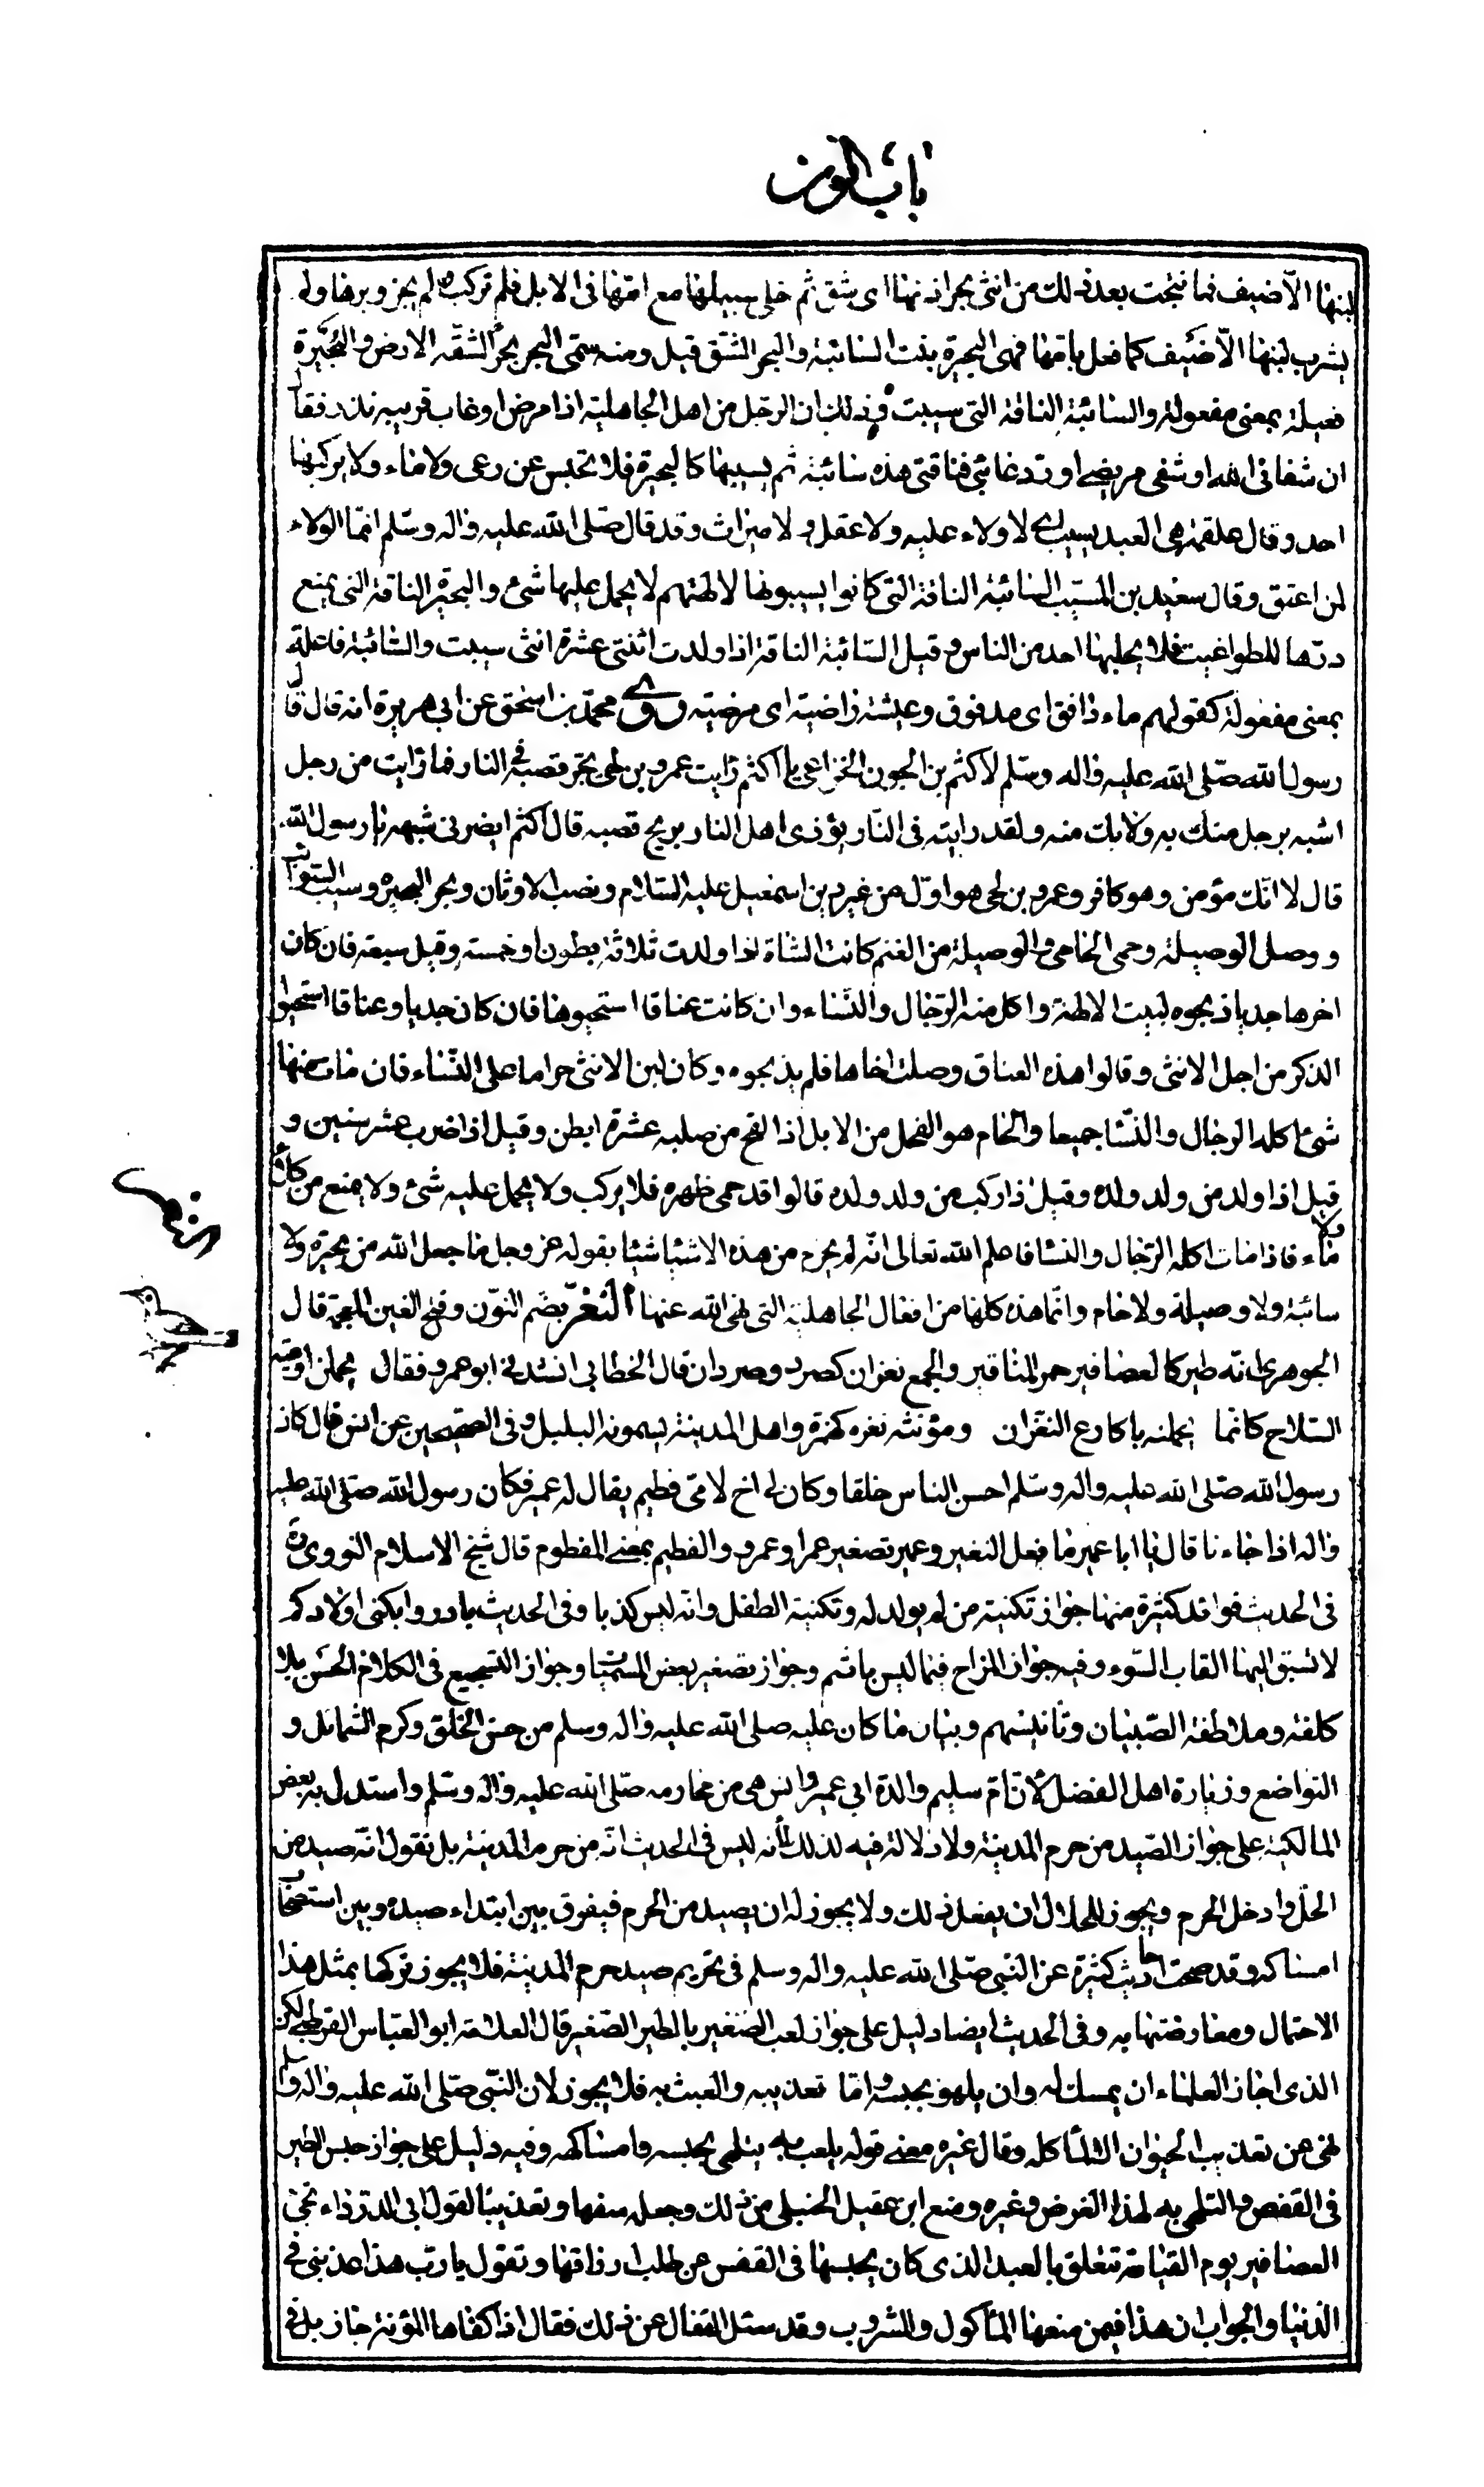 باب النون
لبنها الا ضيف فما نتجت بعد ذلك من انثى بحر اذنها اى شق ثم خلى سبيلها مع امها فى الابل فلم تركب ولم يجز وبرها ولم
يشرب لبنها الا ضيف كما فعل بامها فهى البحيرة بنت السائبة والبحر الشق قيل ومنه سمى البحر بحرا لشقه الارض والبحيرة
فعيلة بمعنى مفعولة والسائبة الناقة التى سيبت وذلك ان الرجل من اهل الجاهلية اذا مرض او غاب قريبه نذر فقال
ان شفانى الله او شفى مريضى او رد غائبى فناقتى هذه سائبة ثم يسيبها كالبحيرة فلا تحبس عن رعى ولا ماء ولا يركبها
احد وقال علقمة هى العبد يسيب لا ولاء عليه ولا عقل ولا ميراث وقد قال صلى الله عليه واله وسلم انما الولاء
لمن اعتق وقال سعيد بن المسيب السائبة الناقة التى كانوا يسيبونها لالهتهم لا يحمل عليها شئ والبحيرة الناقة التى يمنع
درها للطواغيت فلا يحلبها احد من الناس وقيل السائبة الناقة اذا ولدت اثنتى عشرة انثى سيبت والسائبة فاعلة
بمعنى مفعولة كقولهم ماء دافق اى مدفوق وعيشة راضية اى مرضية روى محمد بن اسحق عن ابى هريرة انه قال قال
رسول الله صلى الله عليه واله وسلم لاكثم بن الجون الخزاعى يا اكثم رايت عمرو بن لحى يجر قصبه فى النار فما رايت من رجل
اشبه برجل منك به ولا بك منه ولقد رايته فى النار يؤذى اهل النار بريح قصبه قال اكثم ايضرنى شبهه يا رسول الله
قال لا انك مؤمن وهو كافر وعمرو بن لحى هو اول من غير دين اسمعيل عليه السلام ونصب الاوثان وبحر البحيره وسيب السوائب
ووصل الوصيلة وحمى الحامى والوصيلة من الغنم كانت الشاة اذا ولدت ثلاثة بطون او خمسة وقيل سبعة فان كان
اخرها جديا ذبحوه لبيت الالهة واكل منه الرجال والنساء وان كانت عناقا استحيوها فان كان جديا وعناقا استحيوا
الذكر من اجل الانثى وقالوا هذه العناق وصلت اخاها فلم يذبحوه وكان لبن الانثى حراما على النساء فان مات منها
شئ اكله الرجال والنسا جميعا والحام هو الفحل من الابل اذا لقح من صلبه عشرة ابطن وقيل اذا ضرب عشر سنين و
قيل اذا ولد من ولد ولده وقيل اذا ركب من ولد ولده قالوا قد حمى ظهره فلا يركب ولا يحمل عليه شئ ولا يمنع من كلأ
ولا ماء فاذا مات اكله الرجال والنسا فاعلم الله تعالى انه لم يحرم من هذه الاشيا شيئا بقوله عز وجل ما جعل الله من بحيرة ولا
سائبة ولا وصيلة ولا حام وانما هذه كلها من افعال الجاهلية التى نهى الله عنها النغر بضم النون وفتح الغين المعجمة قال
الجوهرى انه طير كالعصافير حمر المناقير والجمع نغران كصرد وصردان قال الخطابى انشدنى ابو عمرو فقال يحملن اوعية
السلاح كانما يحملنه باكارع النغران ومؤنثه نغره كهمزة واهل المدينة يسمونه البلبل وفى الصحيحين عن انس قال كان
رسول الله صلى الله عليه واله وسلم احسن الناس خلقا وكان لى اخ لامى فطيم يقال له عمير فكان رسول الله صلى الله عليه
واله اذا جاءنا قال يا ابا عمير ما فعل النغير وعمير تصغير عمر او عمرو والفطيم بمعنى المفطوم قال شيخ الاسلام النووى ره
فى الحديث فوائد كثيرة منها جواز تكنية من لم يولد له وتكنية الطفل وانه ليس كذبا وفى الحديث بادروا بكنى اولادكم
لا تسبق اليها القاب السوء وفيه جواز المزاح فيما ليس باثم وجواز تصغير بعض المسميات وجواز التسجيع فى الكلام الحسن بلا
كلفة وملاطفة الصبيان وتانيسهم وبيان ما كان عليه صلى الله عليه واله وسلم من حسن الخلق وكرم الشمائل و
التواضع وزيارة اهل الفضل لان ام سليم والدة ابى عمير وانس هى من محارمه صلى الله عليه واله وسلم واستدل به بعض
المالكية على جواز الصيد من حرم المدينة ولا دلالة فيه لذلك لانه ليس فى الحديث انه من حرم المدينة بل نقول انه صيد من
الحل وادخل الحرم ويجوز للحلال ان يفعل ذلك ولا يجوز له ان يصيد من الحرم فيفرق بين ابتداء صيده وبين استصحاب
امساكه وقد صحت احاديث كثيرة عن النبى صلى الله عليه واله وسلم فى تحريم صيد حرم المدينة فلا يجوز تركها بمثل هذا
الاحتمال ومعارضتها به وفى الحديث ايضا دليل على جواز لعب الصغير بالطير الصغير قال العلامة ابو العباس القرطبى لكن
الذى اجاز العلماء ان يمسك له وان يلهو بحبسه واما تعذيبه والعبث به فلا يجوز لان النبى صلى الله عليه واله وسلم
نهى عن تعذيب الحيوان الا لمأكله وقال غيره معنى قوله يلعب به يتلهى بحبسه وامساكه وفيه دليل على جواز حبس الطير
فى القفص والتلهى به لهذا الغرض وغيره ومنع ابن عقيل الحنبلى من ذلك وجعله سفها وتعذيبا لقول ابى الدرداء تجئ
العصافير يوم القيامة تتعلق بالعبد الذى كان يحبسها فى القفص عن طلب ارزاقها وتقول يا رب هذا عذبنى فى
الدنيا والجواب ان هذا فيمن منعها المأكول والمشروب وقد سئل القفال عن ذلك فقال اذا كفاها المؤنة جاز بل فى
النغر